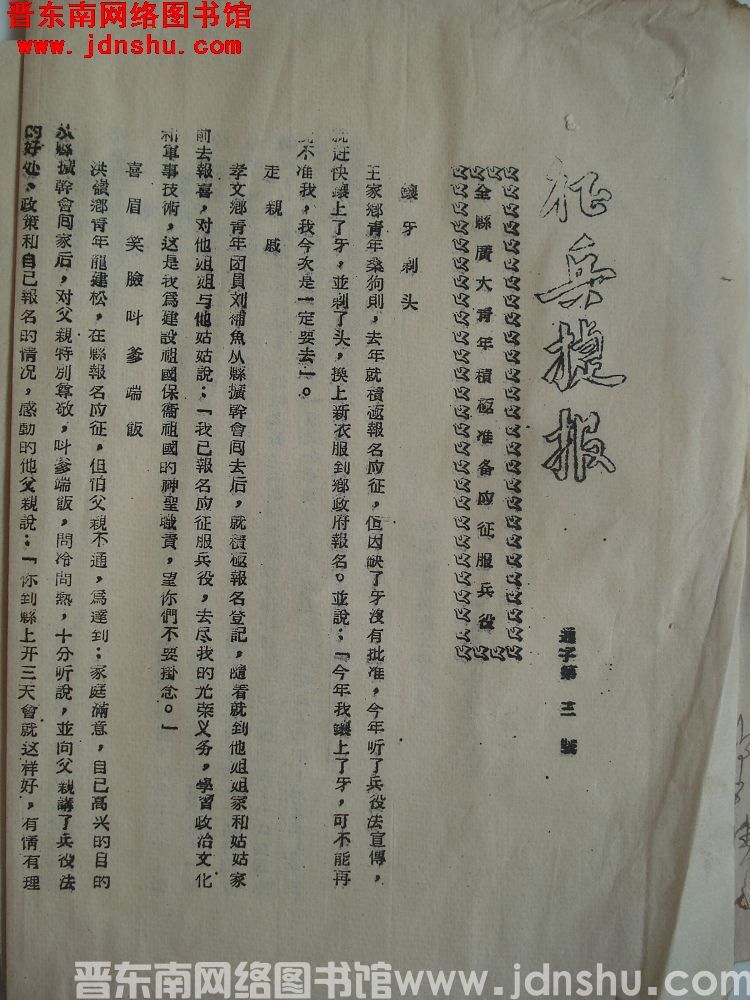 晋东南网络图书馆
www.jdnshu.com
征兵捷报
通字第三號
全縣廣大青年積極准备应征服兵役
鑲牙剃头
王家鄉青年桑狗則，去年就積極報名应征，但因缺了牙沒有批准，今年听了兵役法宣傳，
就赶快鑲上了牙，並剃了头，換上新衣服到鄉政府報名。並說：「今年我鑲上了牙，可不能再
說不准我，我今次是一定要去」。
走親戚
孝文鄉青年团員刘補魚从縣擴幹會囘去后，就積極報名登記，隨着就到他姐姐家和姑姑家
前去報喜，对他姐姐与他姑姑說：「我已報名应征服兵役，去尽我的光荣义务，學習政治文化
和軍事技術，这是我爲建設祖國保衞祖國的神聖職責，望你們不要掛念。」
喜眉笑臉叫爹端飯
洪嶺鄉青年龍建松，在縣報名应征，但怕父親不通，爲達到：家庭滿意，自己高兴的目的
从縣擴幹會囘家后，对父親特別尊敬，叫爹端飯，問冷問熱，十分听說，並向父親講了兵役法
的好处，政策和自己報名的情况，感動的他父親說：「你到縣上开三天會就这样好，有情有理
晋东南网络图书馆www.jdnshu.com